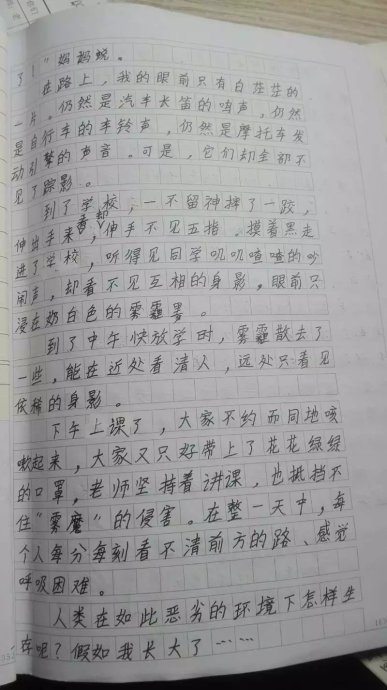 了！”妈妈说。
在路上，我的眼前只有白茫茫的
一片。仍然是汽车长笛的鸣声，仍然
是自行车的车铃声，仍然是摩托车发
动引擎的声音。可是，它们却全都不
见了踪影。
到了学校，一不留神摔了一跤，
伸出手来，查却伸手不见五指。摸着黑走
进了学校，听得见同学叽叽喳喳的吵
闹声，却看不见互相的身影。眼前只
浸在奶白色的雾霾里。
到了中午快放学时，雾霾散去了
一些，能在近处看清人，远处只看见
依稀的身影。
下午上课了，大家不约而同地咳
嗽起来，大家又只好带上了花花绿绿
的口罩，老师坚持着讲课，也抵挡不
住“雾魔”的侵害。在整一天中，每
个人每分每刻看不清前方的路、感觉
呼吸困难。
人类在如此恶劣的环境下怎样生
存呢？假如我长大了……